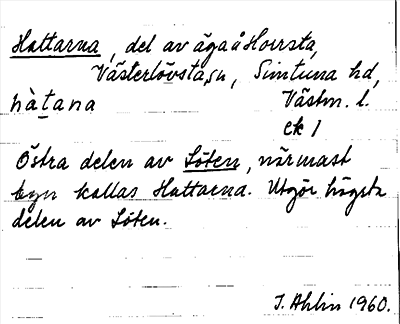 Hattarna, del av äga å Horrsta,
Västerlövsta sn, Simtuna hd,
hàtana Västm. l.
ek 1
Östra delen av Löten, närmast
byn kallas Hattarna. Utgör högsta
delen av Löten.
I. Ahlin 1960.